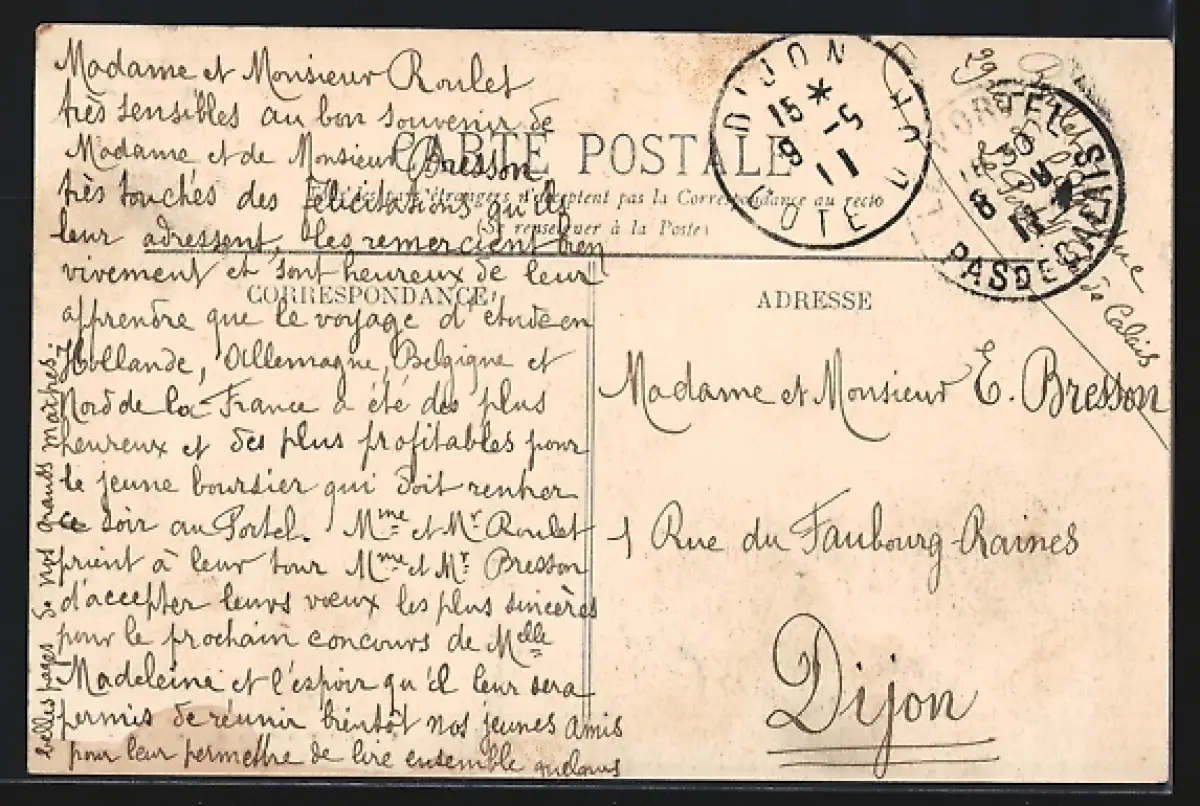 Madame et Monsieur Roulet
très sensibles au bon souvenir de
Madame et de Monsieur Bresson
très touchés des félicitations qu'ils
leur adressent, les remercient bien
vivement et sont heureux de leur
apprendre que le voyage d'étude en
Hollande, Allemagne, Belgique et
Nord de la France a été des plus
heureux et des plus profitables pour
le jeune boursier qui doit rentrer
ce soir au Portel. Mme et Mr Roulet
prient à leur tour Mme et Mr Bresson
d'accepter leurs vœux les plus sincères
pour le prochain concours de Melle
Madeleine et l'espoir qu'il leur sera
permis de réunir bientôt nos jeunes amis
pour leur permettre de lire ensemble quelques
belles pages de nos grands maîtres.
CARTE POSTALE
pas la Correspondance au recto
(Se renseigner à la Poste)
CORRESPONDANCE
ADRESSE
DIJON
15 *
9 -5
11
COTE D'OR
PAS DE CALAIS
8
11
Roulet
de Calais
Madame et Monsieur E. Bresson
1 Rue du Faubourg-Raines
Dijon